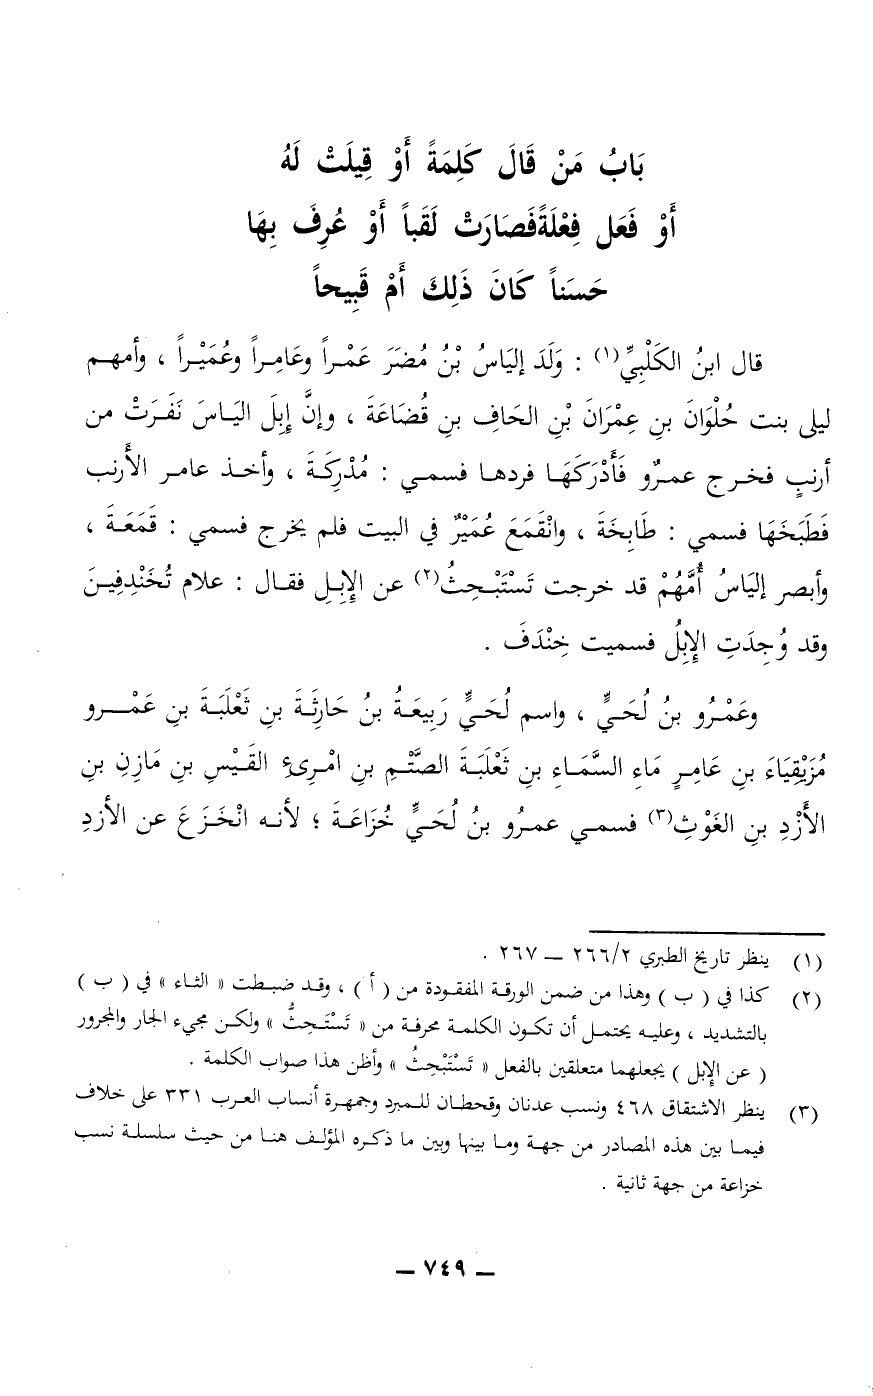 بَابُ مَنْ قَالَ كَلِمَةً أَوْ قِيلَتْ لَهُ
أَوْ فَعَل فِعْلَةً فَصَارَتْ لَقَباً أَوْ عُرِفَ بِهَا
حَسَناً كَانَ ذَلِكَ أَمْ قَبِيحاً
قال ابنُ الكَلْبِيِّ(١) : وَلَدَ إليَاسُ بْنُ مُضَرَ عَمْراً وعَامِراً وعُمَيْراً ، وأمهم
ليلى بنت حُلْوَانَ بنِ عِمْرَانَ بْنِ الحَافِ بنِ قُضَاعَةَ ، وإنَّ إِبِلَ اليَاسَ نَفَرَتْ من
أرنبٍ فخرج عمرٌو فَأَدْرَكَهَا فردها فسمي : مُدْرِكَةَ ، وأخذ عامر الأرنب
فَطَبَخَهَا فسمي : طَابِخَةَ ، وانْقَمَعَ عُمَيْرٌ في البيت فلم يخرج فسمي : قَمَعَةَ ،
وأبصر إليَاسُ أُمَّهُمْ قد خرجت تَسْتَبْحِثُ(٢) عن الإِبِلِ فقال : علام تُخَنْدِفِينَ
وقد وُجِدَتِ الإِبِلُ فسميت خِنْدَفَ .
وعَمْرُو بنُ لُحَيٍّ ، واسم لُحَيٍّ رَبِيعَةُ بنُ حَارِثَةَ بنِ ثَعْلَبَةَ بنِ عَمْرو
مُزَيْقِيَاءَ بنِ عَامِرٍ مَاءِ السَّمَاءِ بنِ ثَعْلَبَةَ الصَّتْمِ بنِ امْرِئِ القَيْسِ بنِ مَازِنِ بنِ
الأَزْدِ بنِ الغَوْثِ(٣) فسمي عمرُو بنُ لُحَيٍّ خُزَاعَةَ ؛ لأنه انْخَزَعَ عن الأزدِ
(١) ينظر تاريخ الطبري ٢٦٦/٢ – ٢٦٧ .
(٢) كذا في ( ب ) وهذا من ضمن الورقة المفقودة من ( أ ) ، وقد ضبطت « الثاء » في ( ب )
بالتشديد ، وعليه يحتمل أن تكون الكلمة محرفة من « تَسْتَحِثُّ » ولكن مجيء الجار والمجرور
( عن الإبل ) يجعلهما متعلقين بالفعل « تَسْتَبْحِثُ » وأظن هذا صواب الكلمة .
(٣) ينظر الاشتقاق ٤٦٨ ونسب عدنان وقحطان للمبرد وجمهرة أنساب العرب ٣٣١ على خلاف
فيما بين هذه المصادر من جهة وما بينها وبين ما ذكره المؤلف هنا من حيث سلسلة نسب
خزاعة من جهة ثانية .
– ٧٤٩ –